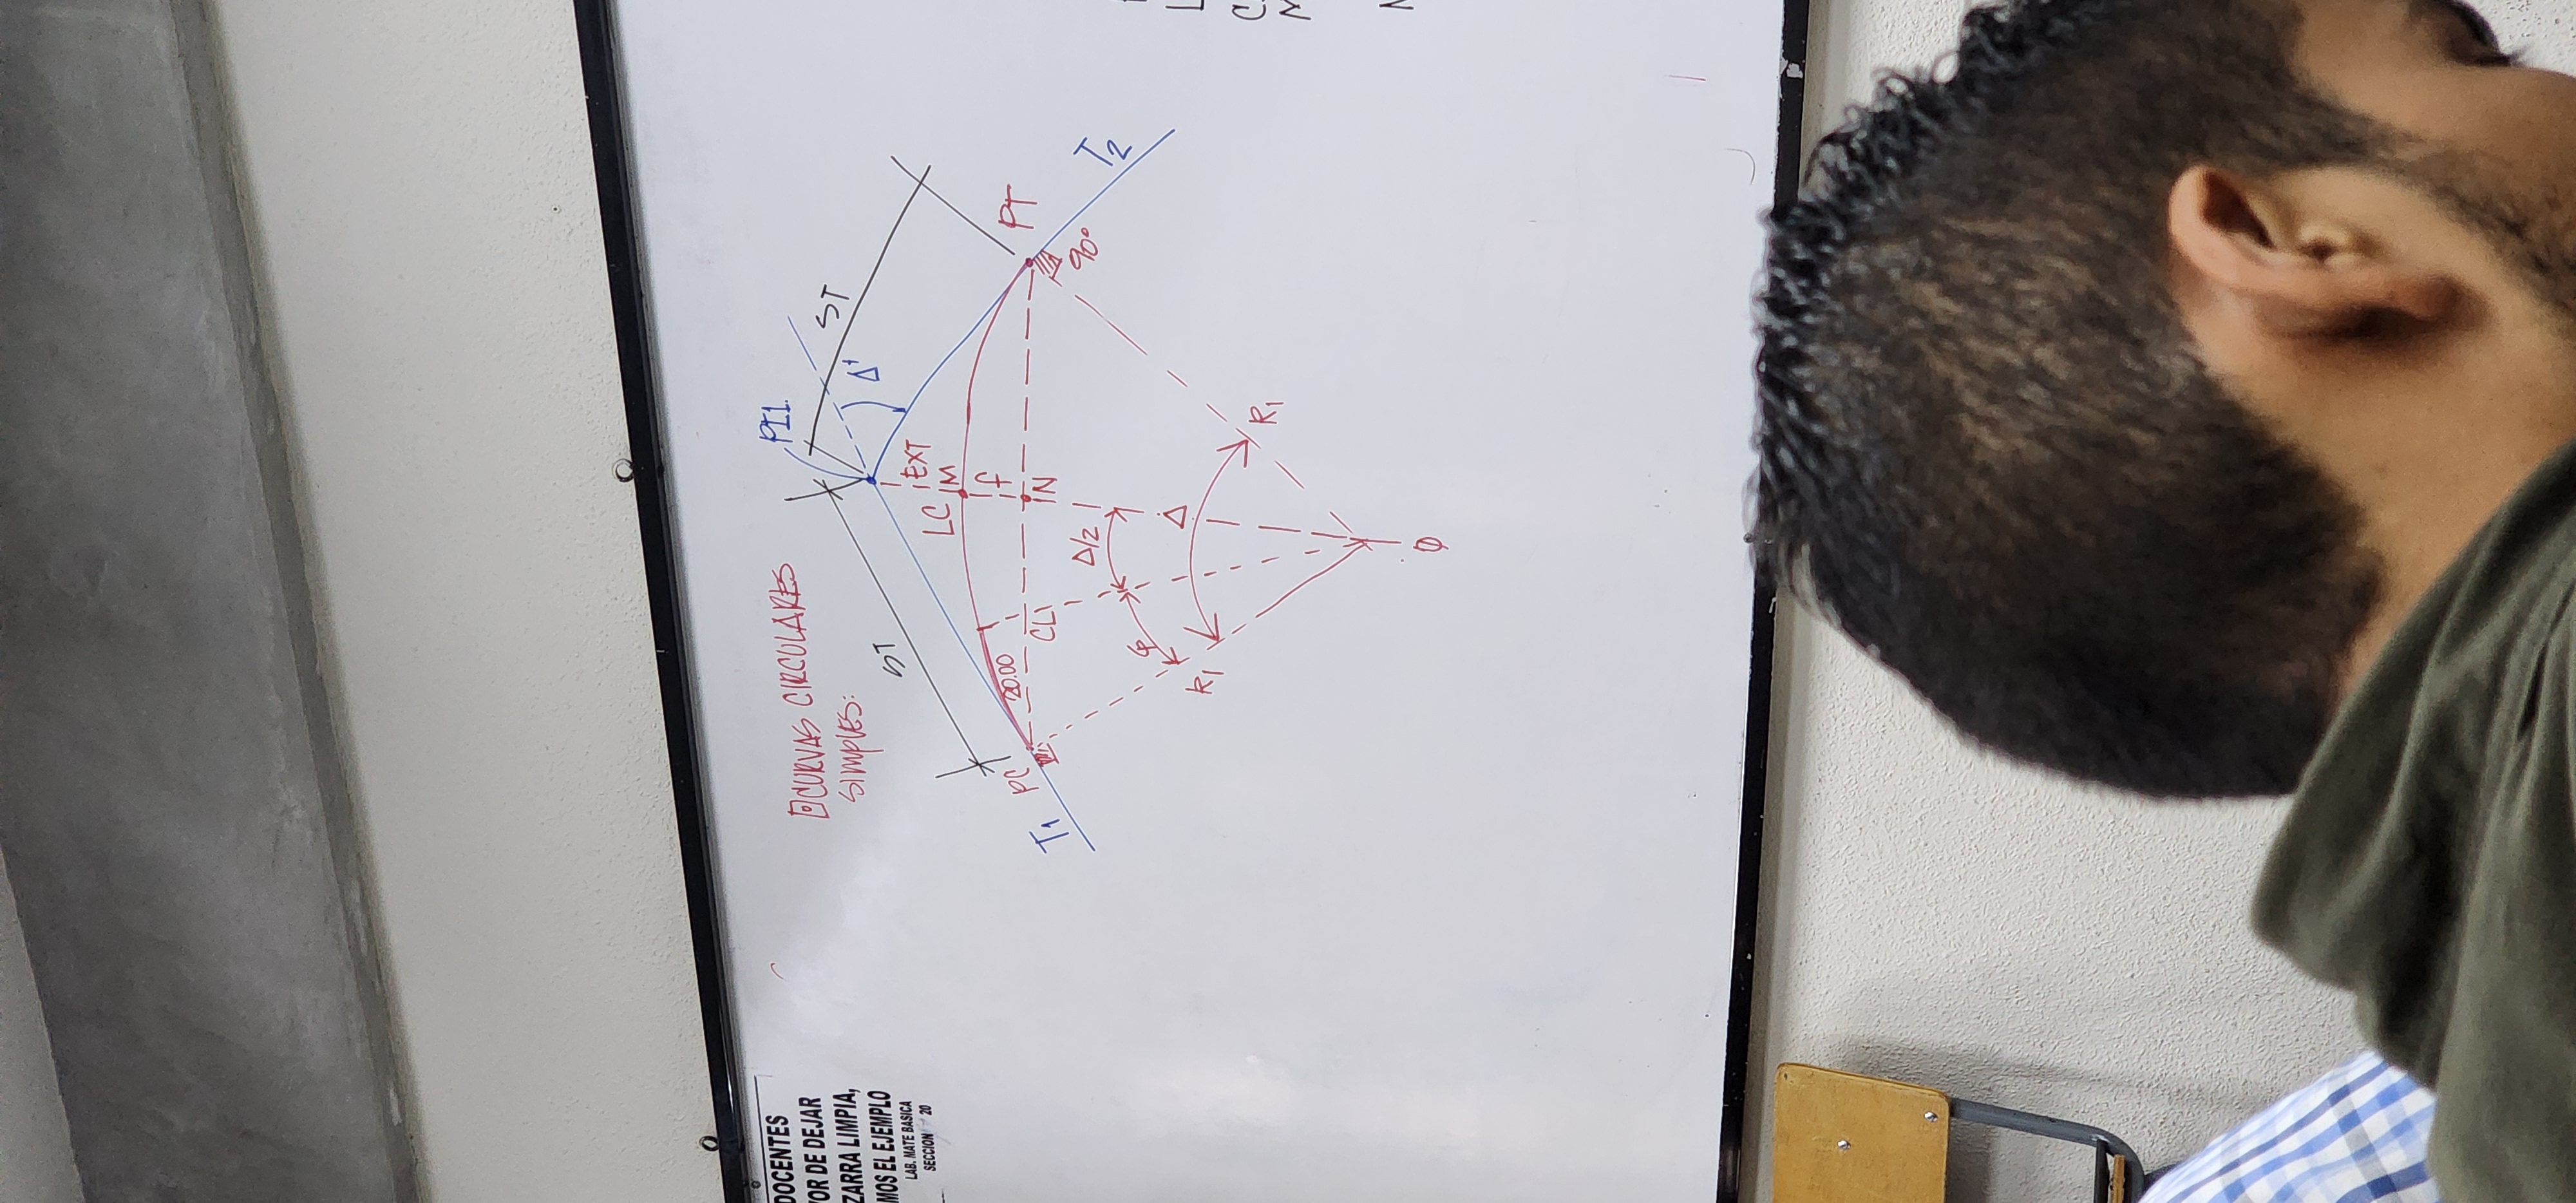 DOCENTES
VOR DE DEJAR
ZARRA LIMPIA,
MOS EL EJEMPLO
LAB. MATE BASICA
SECCION 20
CURVAS CIRCULARES
SIMPLES:
PI1.
ST
ST
Δ'
EXT
LC
M
f
20.00
PC
PT
T1
CL
N
90°
T2
Δ/2
φ
Δ
R1
R1
Ø
L
C
M